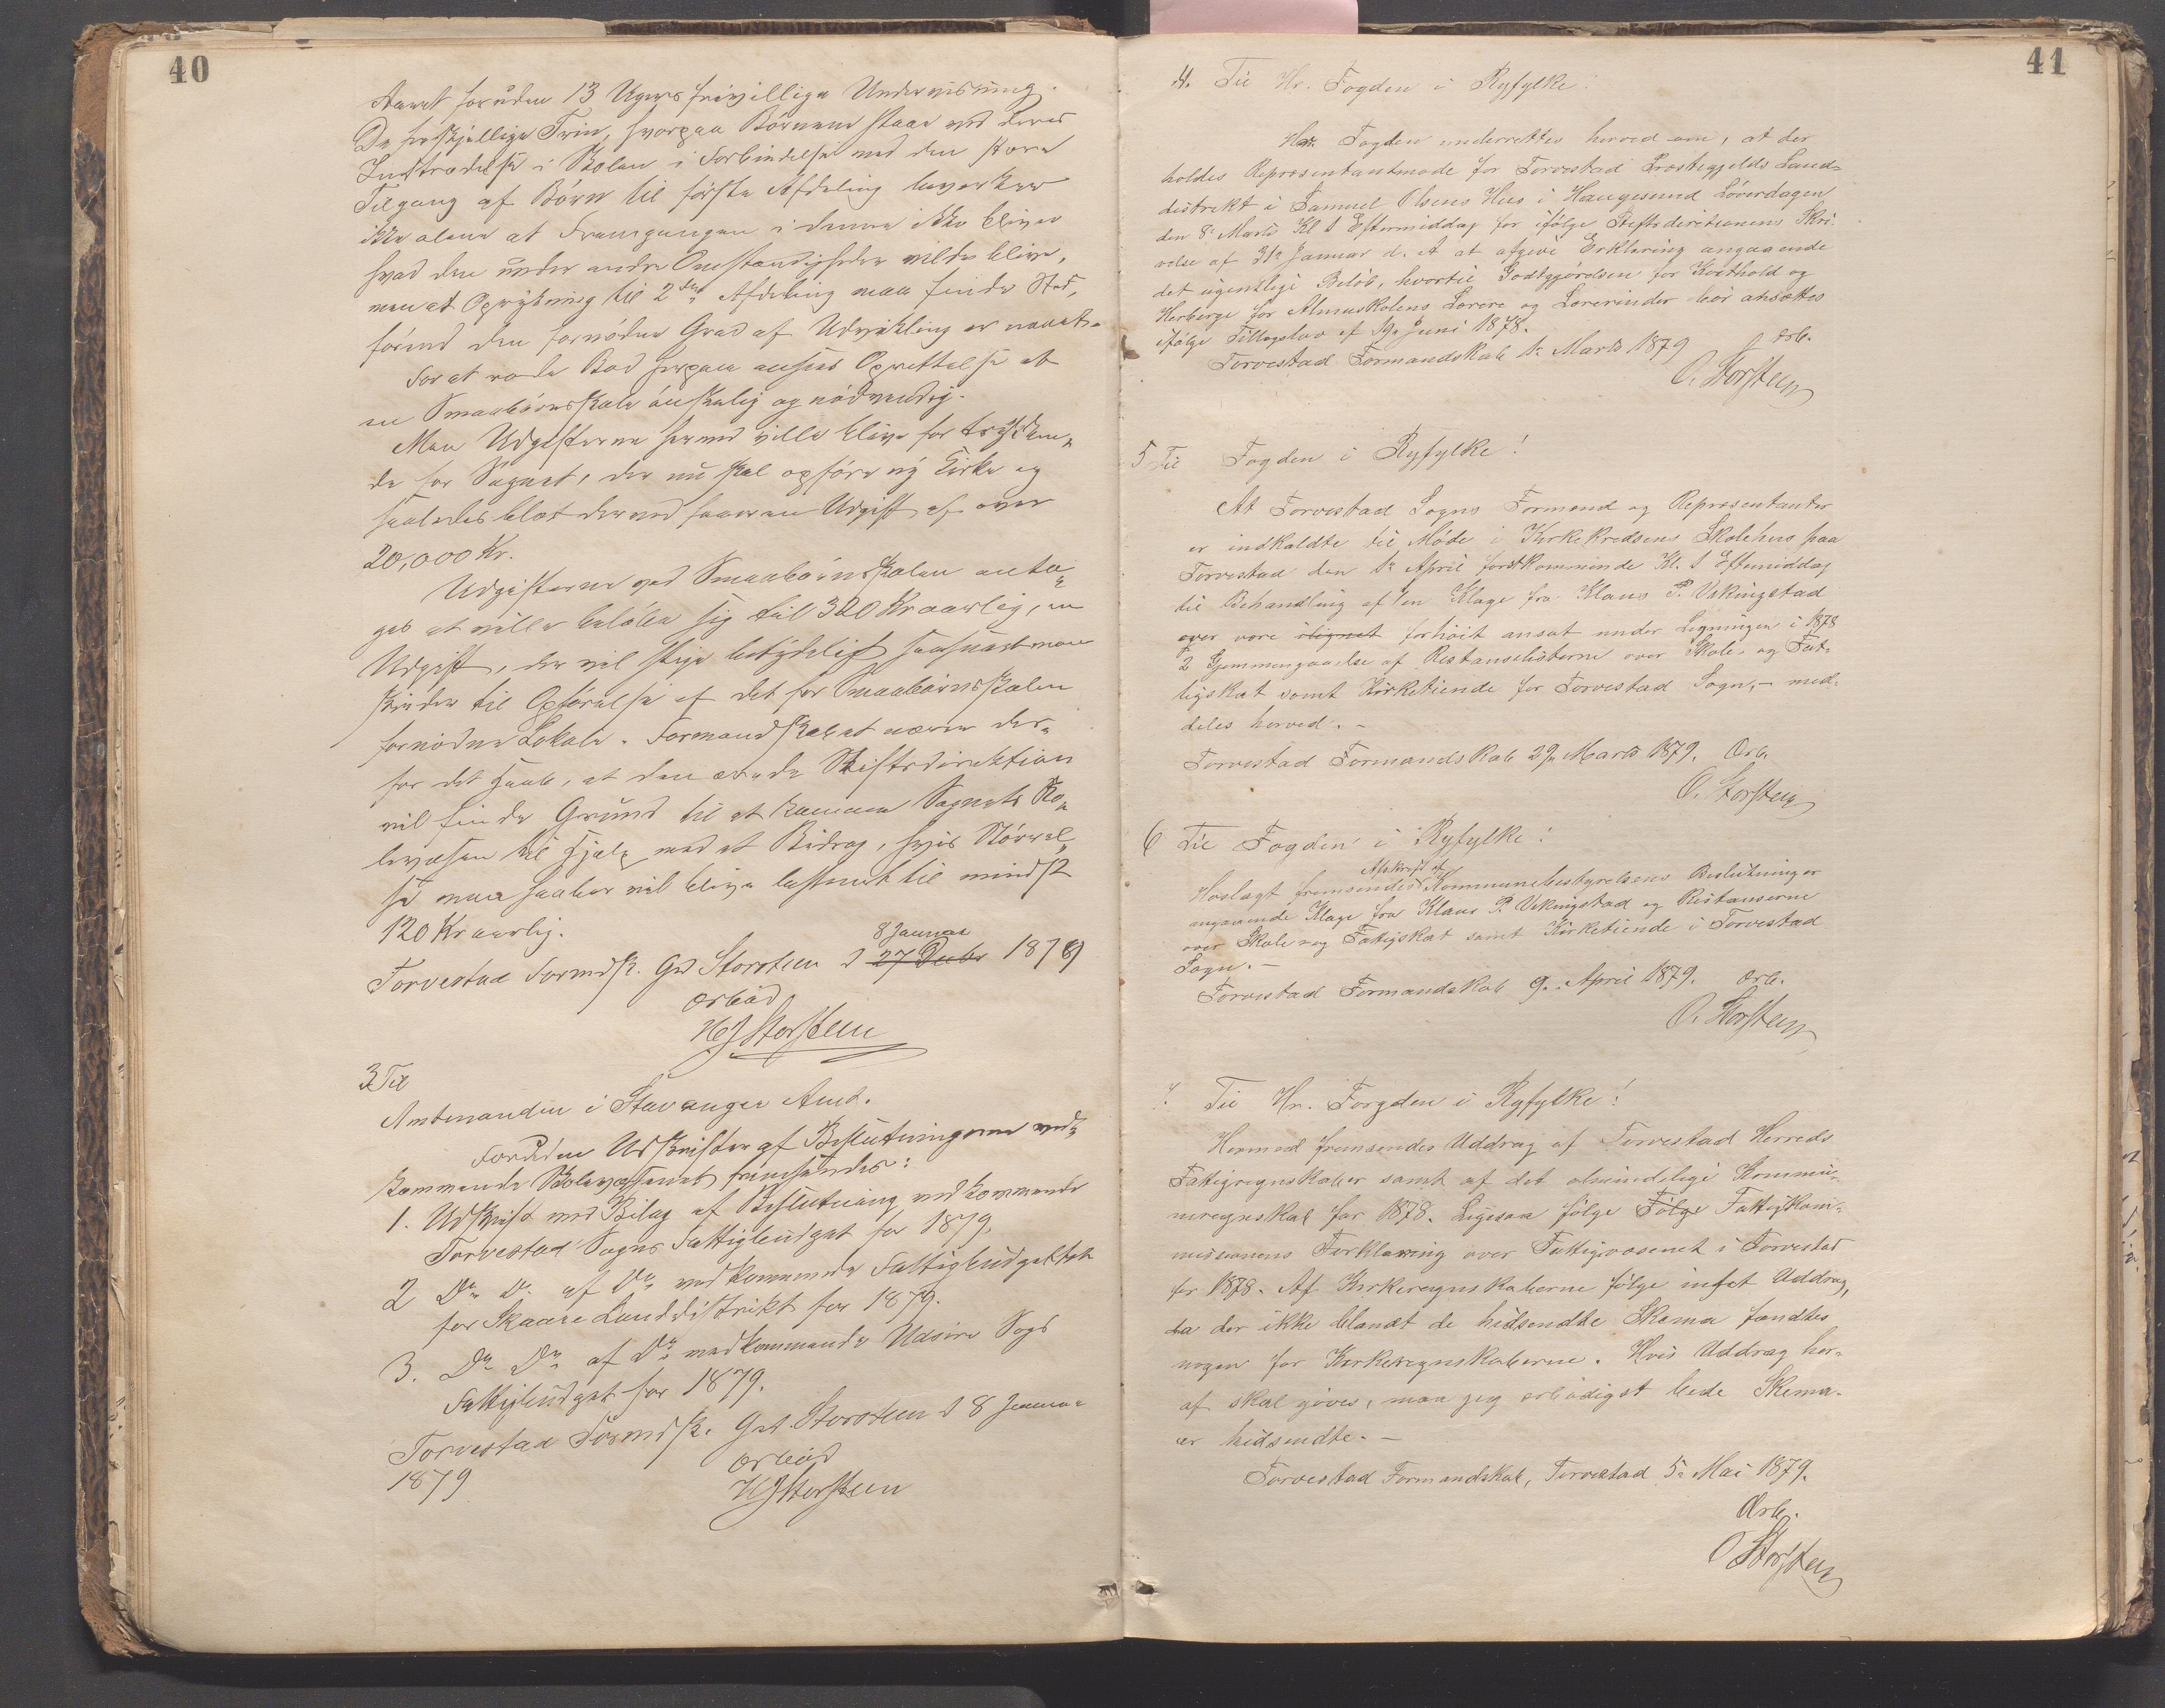 40
Aaret foruden 13 Ugers frivillige Undervisning.
De forskjellige Trin, hvorpaa Börnene staar ved deres
Indtrædelse i Skolen i Forbindelse med den store
Tilgang af Börn til förste Afdeling bevirker
ikke alene at Fremgangen i denne ikke bliver
hvad den under andre Omstændigheder vilde blive,
men at Oprykning til 2den Afdeling maa finde Sted,
förend den fornödne Grad af Udvikling er naaet.
For at raade Bod herpaa ansees Oprettelse af
en Smaabörnsskole önskelig og nödvendig.
Men Udgifterne herved ville blive for trykken-
de for Sognet, der nu skal opföre ny Kirke og
saaledes blot derved faaer en Udgift af over
20,000 Kr.
Udgifterne ved Smaabörnsskolen anta-
ges at ville belöbe sig til 320 Kr aarlig, en
Udgift, der vil stige betydelig saasnart man
skrider til Opförelse af det for Smaabörnsskolen
fornödne Lokale. Formandskabet nærer der-
for det Haab, at den ærede Stiftsdirektion
vil finde Grund til at komme Sognets Sko-
levæsen til Hjælp med et Bidrag, hvis Störrel-
se man haaber vil blive bestemt til mindst
120 Kr aarlig.
8 Januar
Torvestad Formdsk. Grd Storsteen d 27 Decbr 1879
ærböd
H J Storsteen
3 Til
Amtmanden i Stavanger Amt.
Foruden Udskrifter af Beslutningerne ved-
kommende Skolevæsenet fremsendes:
1. Udskrift med Bilag af Beslutning vedkommende
Torvestad Sogns Fattigbudget for 1879.
2 Do Do af Do vedkommende Fattigbudgettet
for Skaare Landdistrikt for 1879.
3. Do Do af Do vedkommende Udsire Sogs
Fattigbudget for 1879.
Torvestad Formdsk. Grd Storsteen d 8 Januar
1879
ærböd
H J Storsteen
41
4. Til Hr. Fogden i Ryfylke!
Hr. Fogden underrettes herved om, at der
holdes Repræsentantmöde for Torvestad Præstegjelds Land-
distrikt i Samuel Olsens Hus i Haugesund Löverdagen
den 8de Marts Kl 1 Eftermiddag for ifölge Stiftsdirektionens Skri-
velse af 31te Januar d. A at afgive Erklæring angaaende
det ugentlige Belöb, hvortil Godtgjörelsen for Kosthold og
Herberge for Almuskolens Lærere og Lærerinder bör ansættes
ifölge Tillægslov af 19de Juni 1878.
Torvestad Formandskab 1te Marts 1879 Ærb.
O. Storsteen
5 Til Fogden i Ryfylke!
At Torvestad Sogns Formænd og Repræsentanter
er indkaldte til Möde i Kirkekredsens Skolehus paa
Torvestad den 1te April förstkommende Kl. 1 Eftemiddag
til Behandling af 1 en Klage fra Klaus P. Vikingstad
over være ilignet forhöit ansat under Ligningen i 1878
2 Gjennemgaaelse af Restanselisterne over Skole- og Fat-
tigskat samt Kirketiende for Torvestad Sogn, – med-
deles herved. –
Torvestad Formandskab 29de Marts 1879. Ærb.
O. Storsteen
6 Til Fogden i Ryfylke!
Afskrift af
Hoslagt fremsendes Kommunebestyrelsens Beslutninger
angaaende Klage fra Klaus P. Vikingstad og Restanserne
over Skole- og Fattigskat samt Kirketiende i Torvestad
Sogn. –
Torvestad Formandskab 9de April 1879. Ærb.
O. Storsteen
7. Til Hr. Forgden i Ryfylke!
Hermed fremsendes Uddrag af Torvestad Herreds
Fattigregnskaber samt af det almindelige Kommu-
neregnskab for 1878. Ligesaa fölge Fölge Fattigkom-
missionens Forklaring over Fattigvæsenet i Torvestad
for 1878. Af Kirkeregnskaberne fölge intet Uddrag,
da der ikke blandt de hidsendte Skema fandtes
nogen for Kirkeregnskaberne. Hvis Uddrag her-
af skal gives, maa jeg ærbödigst bede Skema-
er hidsendte. –
Torvestad Formandskab, Torvestad 5te Mai 1879.
Ærb.
O Storsteen